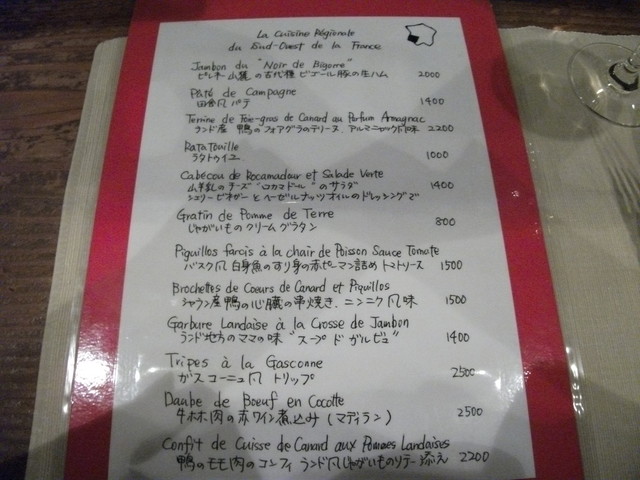 La Cuisine Régionale
du Sud-Ouest de la France
Jambon du "Noir de Bigorre"
ピレネー山麓の古代種 ビゴール豚の生ハム 2000
Pâté de Campagne
田舎風パテ 1400
Terrine de Foie-gros de Canard au Parfum Armagnac
ランド産 鴨のフォアグラのテリーヌ、アルマニャック風味 2200
Ratatouille
ラタトゥイユ 1000
Cabécou de Rocamadour et Salade Verte
山羊乳のチーズ"ロカマドール"のサラダ 1400
シェリービネガーとヘーゼルナッツオイルのドレッシングで
Gratin de Pomme de Terre
じゃがいものクリームグラタン 800
Piquillos farcis à la chair de Poisson Sauce Tomate
バスク風 白身魚のすり身の赤ピーマン詰め トマトソース 1500
Brochettes de Coeurs de Canard et Piquillos
シャラン産鴨の心臓の串焼き、ニンニク風味 1500
Garbure Landaise à la Crosse de Jambon
ランド地方のママの味"スープ ド ガルビュ" 1400
Tripes à la Gasconne
ガスコーニュ風 トリップ 2500
Daube de Boeuf en Cocotte
牛ホホ肉の赤ワイン煮込み(マディラン) 2500
Confit de Cuisse de Canard aux Pommes Landaises
鴨のモモ肉のコンフィ ランド風じゃがいものソテー添え 2200